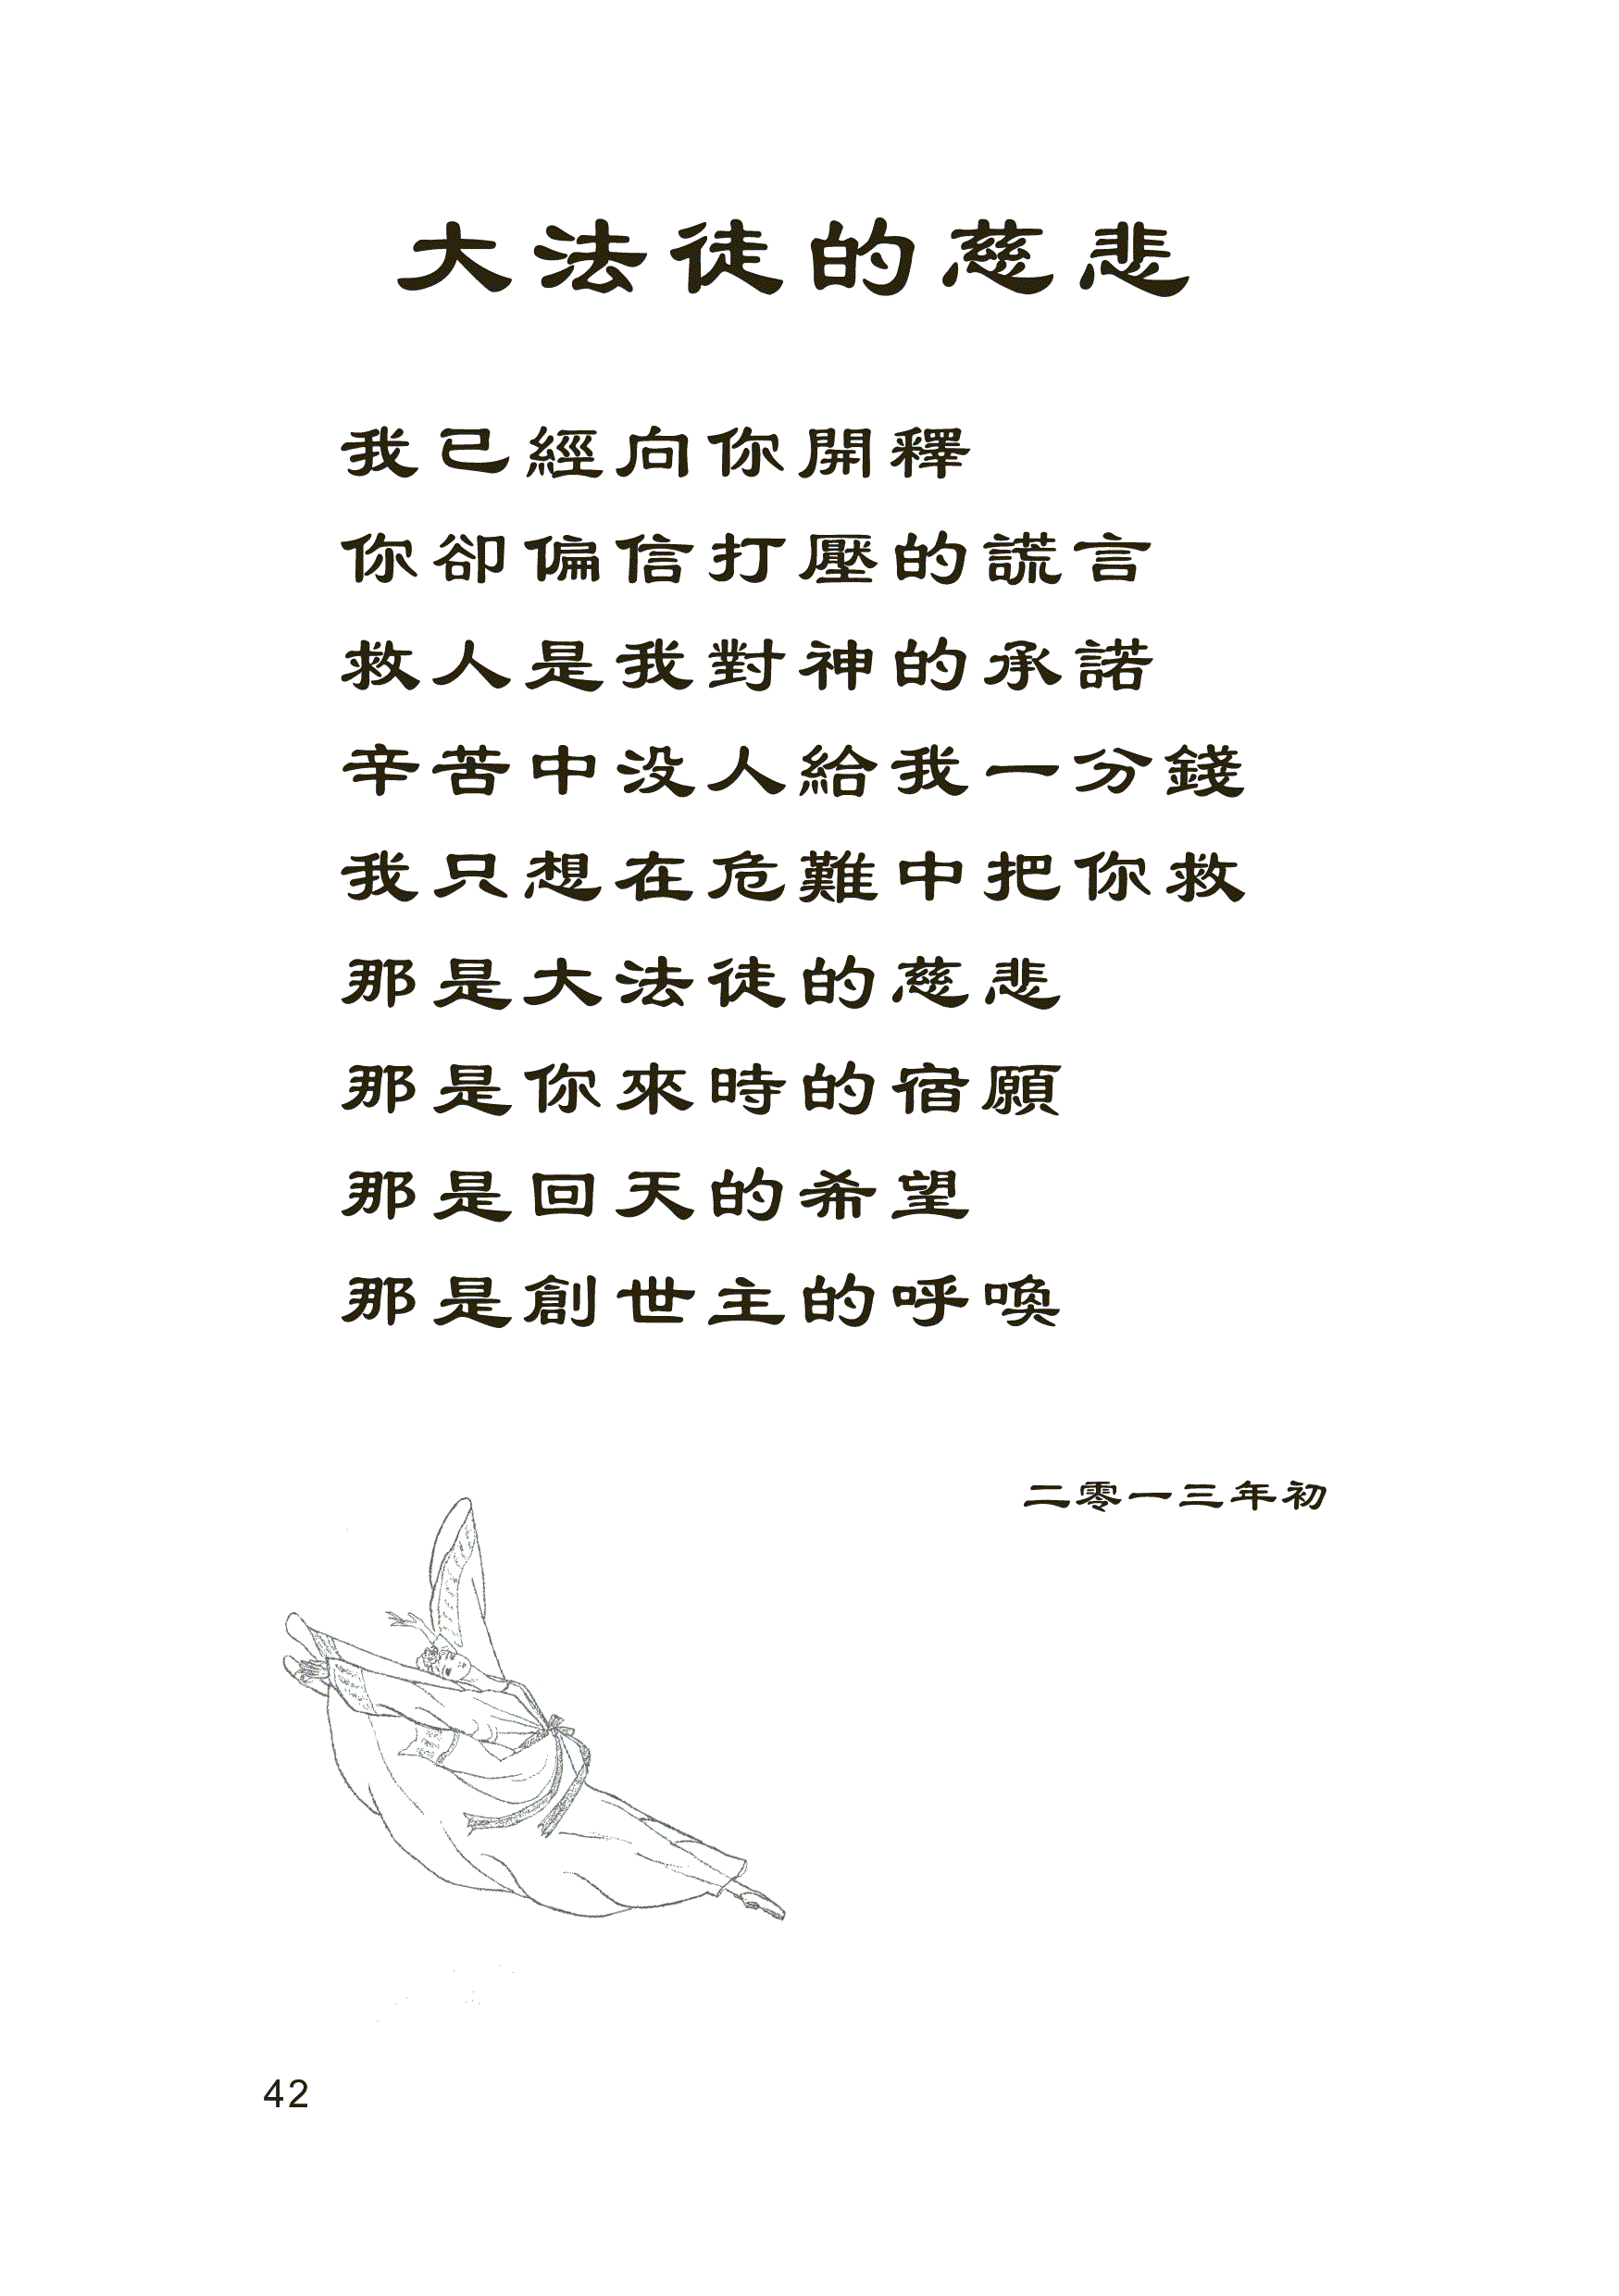 大法徒的慈悲
我已經向你開釋
你卻偏信打壓的謊言
救人是我對神的承諾
辛苦中没人給我一分錢
我只想在危難中把你救
那是大法徒的慈悲
那是你來時的宿願
那是回天的希望
那是創世主的呼喚
二零一三年初
42